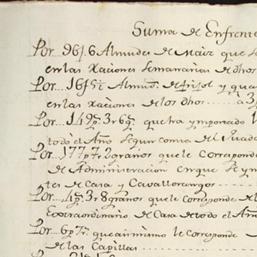 Suma de Enfrente
Por 9616 Almudes de Maiz que se
en las raciones Semanarias de dhos
Por 1615 Almuds de frisol y qua
en las raciones de los dhos a 3
Por 149p 3r 6g que ha ymportado
todo el Año segun consta del Quad
Por 177p 7r 2 granos que le Corresponde
de Administracion en que se yn
tes de Casa y Cavallerangos
Por 4p 3r 8 granos que le Corresponde
Extraordinario de Casa de todo el Año
Por 6p 7r que asimismo le Corresponde
de las Capillas